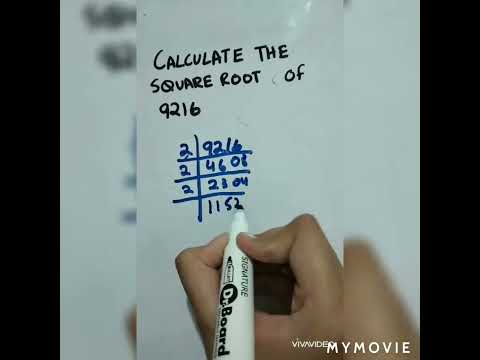 CALCULATE THE
SQUARE ROOT OF
9216
2 9216
2 4608
2 2304
1152
SIGNATURE
Board
VIVAVIDEO
MYMOVIE